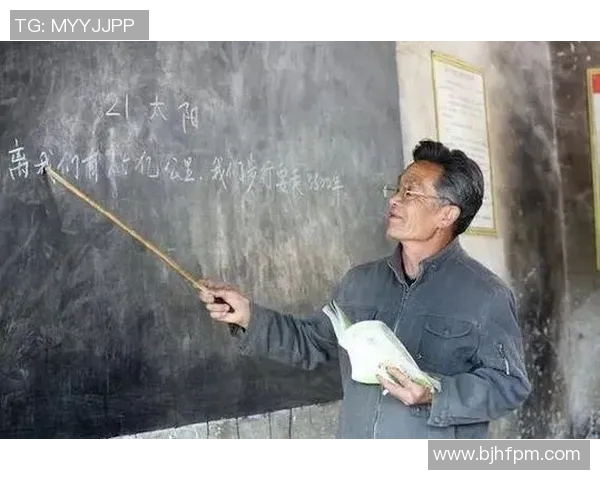 TG: MYYJJPP
21 太阳
离我们有1.5亿公里,我们步行要走3500年
www.bjhfpm.com